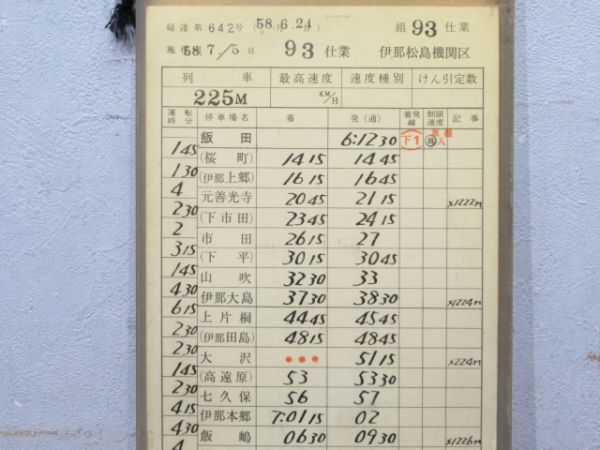 局達第642号(58.6.24) 組93仕業
58.7./5日 93仕業 伊那松島機関区
列車 最高速度 速度種別 けん引定数
225M KM/H
運転時分 停車場名 着 発(通) 着発線 制限速度 記事
飯田 6:1230 下1
145
(桜町) 1415 1445
130
(伊那上郷) 1615 1645
4
元善光寺 2045 2115 ×1222M
230
(下市田) 2345 2415
2
市田 2615 27
315
(下平) 3015 3045
145
山吹 3230 33
430
伊那大島 3730 3830 ×1224M
615
上片桐 4445 4545
230
(伊那田島) 4815 4845
230
大沢 ••• 5115 ×224M
145
(高遠原) 53 5330
230
七久保 56 57
415
伊那本郷 7:0115 02
430
飯嶋 0630 0930 ×1226M
4